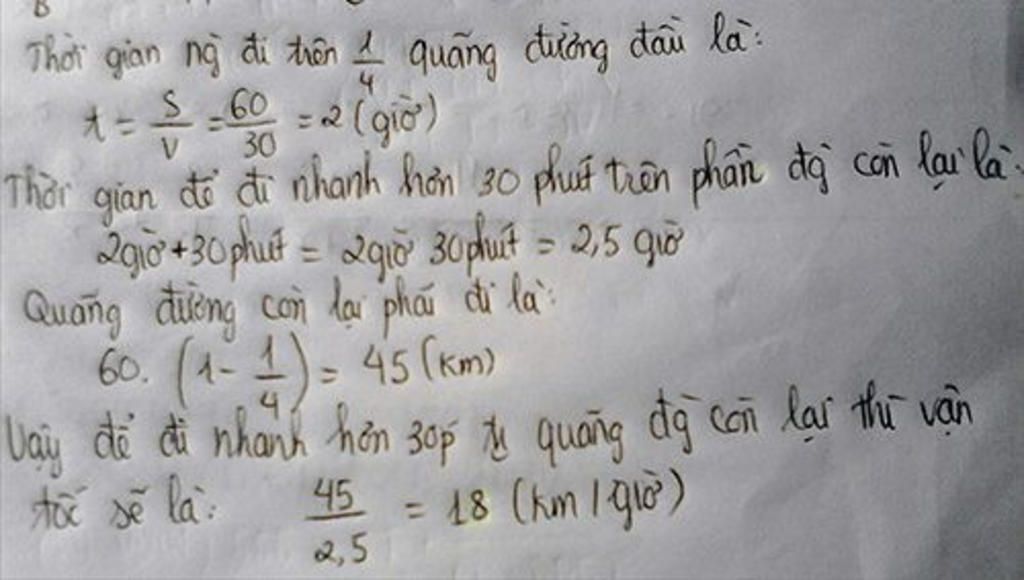 B
Thời gian ng đi trên 1/4 quãng đường đầu là:
t = S/V = 60/30 = 2 (giờ)
Thời gian để đi nhanh hơn 30 phút trên phần đg còn lại là:
2giờ + 30phút = 2giờ 30phút = 2,5 giờ
Quãng đường còn lại phải đi là:
60. (1 - 1/4) = 45 (km)
Vậy để đi nhanh hơn 30p quãng đg còn lại thì vận
tốc sẽ là: 45/2,5 = 18 (km/giờ)